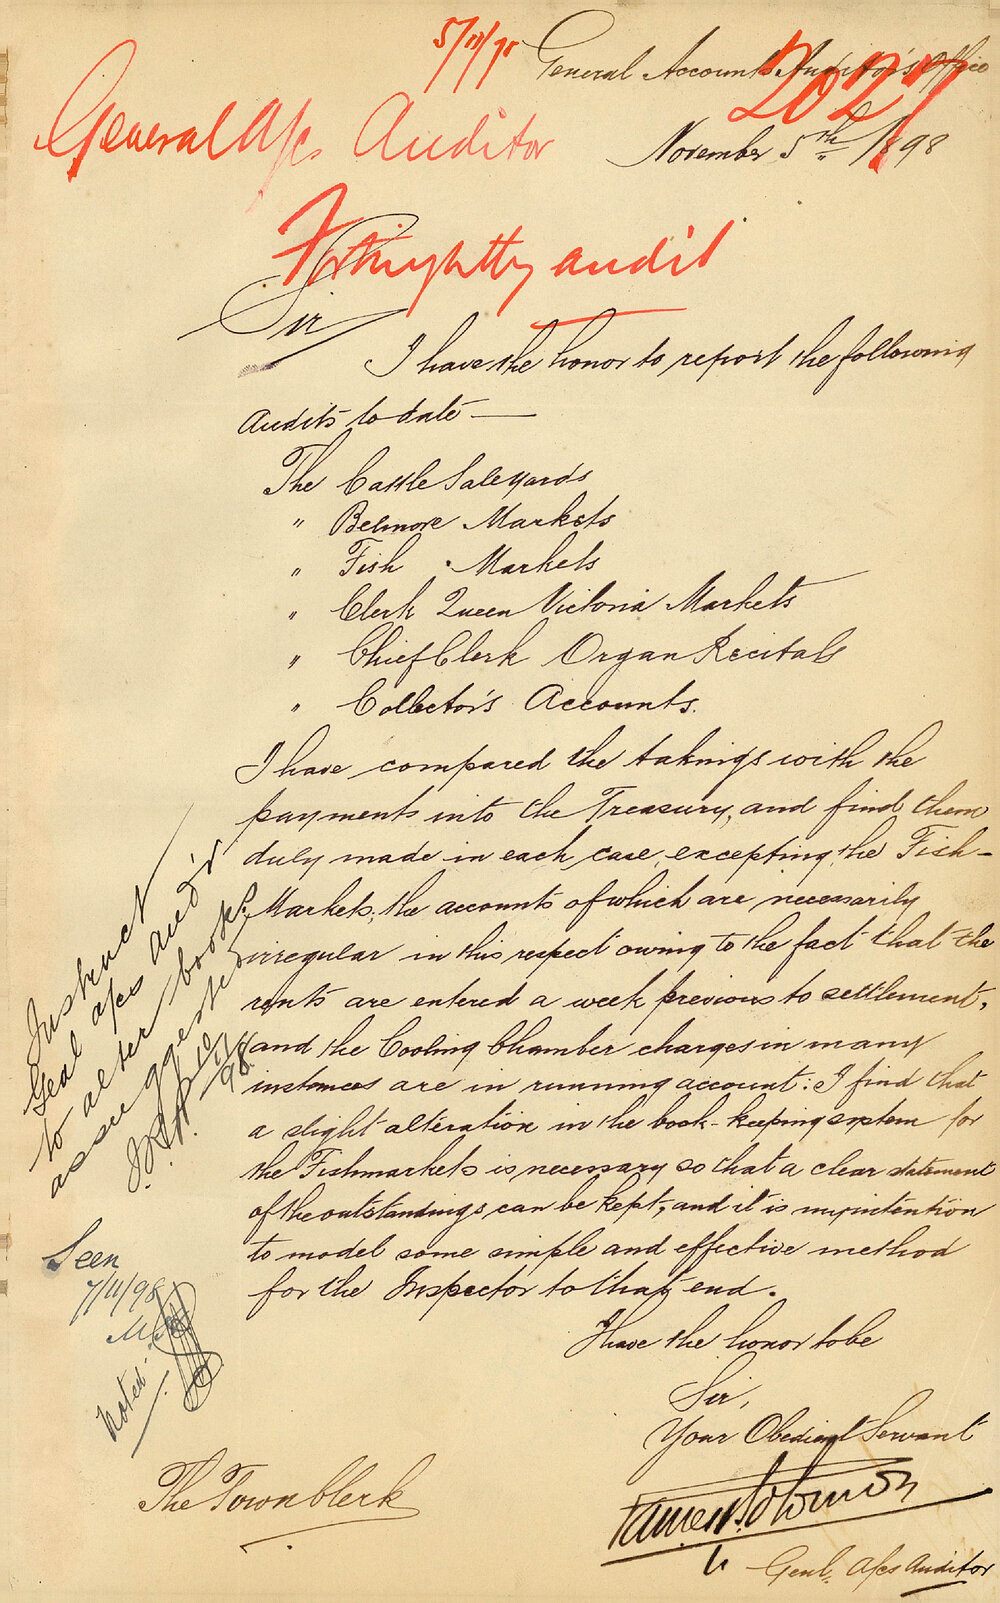 5/11/98
General Accounts Auditor's Office
2027
General A/cs Auditor
November 5th 1898
Fortnightly audit
Sir
I have the honor to report the following
Audits to date —
The Cattle Saleyards
" Belmore Markets
" Fish Markets
" Clerk Queen Victoria Markets
" Chief Clerk Organ Recitals
" Collector's Accounts.
I have compared the takings with the
payments into the Treasury, and find them
duly made in each case, excepting the Fish-
Markets, the accounts of which are necessarily
irregular in this respect owing to the fact that the
rents are entered a week previous to settlement,
and the Cooling Chamber charges in many
instances are in running account: I find that
a slight alteration in the book-keeping system for
the Fishmarkets is necessary so that a clear statement
of the outstandings can be kept, and it is my intention
to model some simple and effective method
for the Inspector to that end.
I have the honor to be
Sir,
Your Obedient Servant
James Solomon
Genl. A/cs Auditor
The Town Clerk
Instruct
Genl a/cs aud'r
to alter books
as suggested
98
Seen
7/11/98
Noted